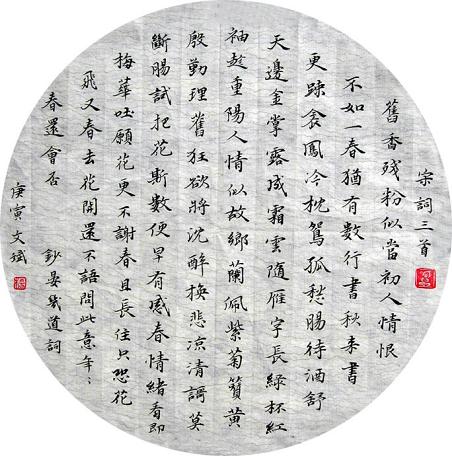 宋詞三首
舊香殘粉似當初人情恨
不如一春猶有數行書秋来書
更踈衾鳳冷枕鴛孤愁腸待酒舒
天邊金掌露成霜雲隨雁字長綠杯紅
袖趁重陽人情似故鄉蘭佩紫菊簪黃
殷勤理舊狂欲將沈醉換悲凉清謌莫
斷腸試把花期數便早有感春情緒看即
梅華吐願花更不謝春且長住只恐花
飛又春去花開還不語問此意年〻
春還會否 鈔晏幾道詞
庚寅文斌